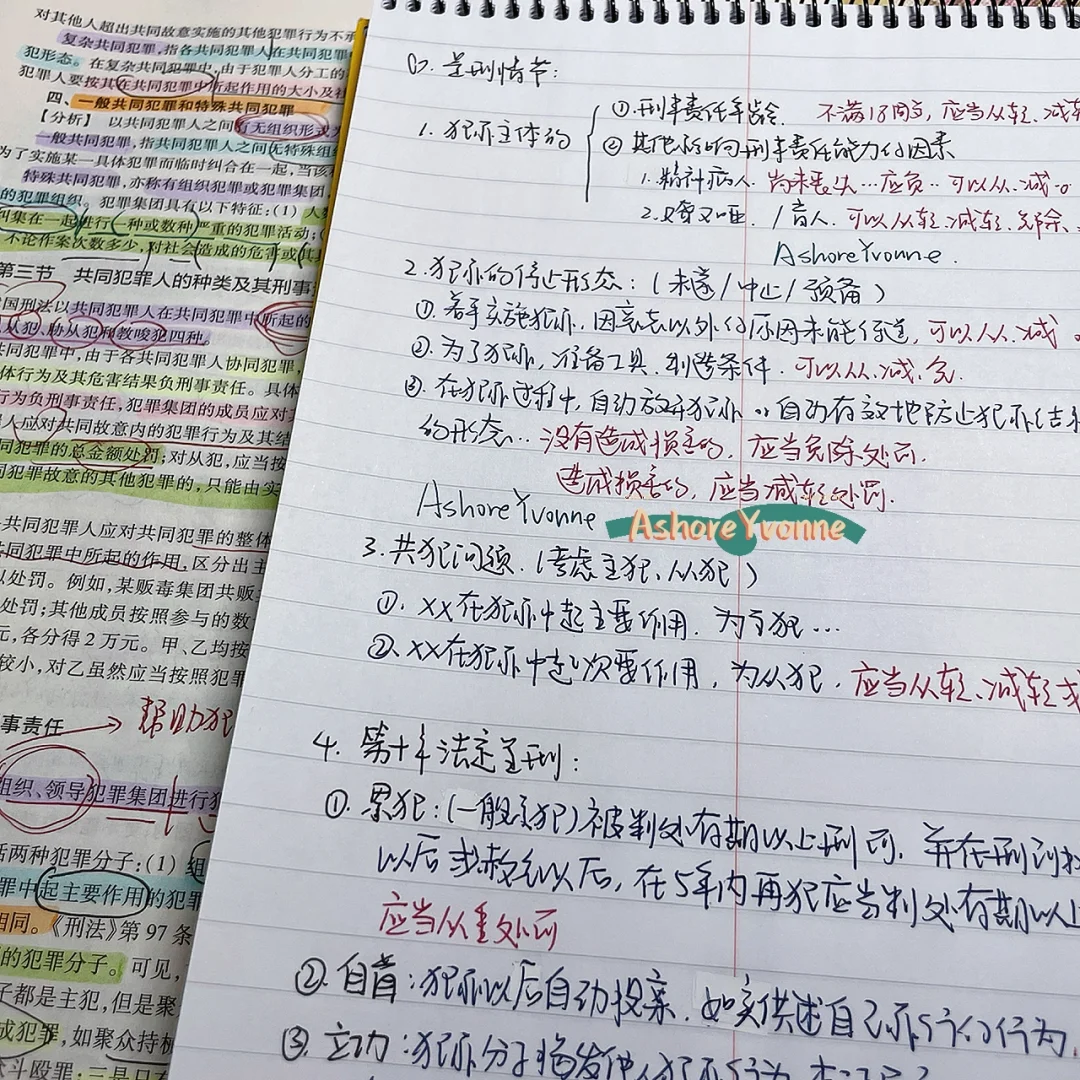 对其他人超出共同故意实施的其他犯罪行为不承
复杂共同犯罪，指各共同犯罪人在共同犯罪
犯形态。在复杂共同犯罪中，由于犯罪人分工的
犯罪人要按其在共同犯罪中所起作用的大小及社
四、一般共同犯罪和特殊共同犯罪
【分析】 以共同犯罪人之间有无组织形式为
一般共同犯罪，指共同犯罪人之间无特殊组织
为了实施某一具体犯罪而临时纠合在一起，当该
特殊共同犯罪，亦称有组织犯罪或犯罪集团
的犯罪组织。犯罪集团具有以下特征：(1) 人数
纠集在一起进行一种或数种严重的犯罪活动；(
不论作案次数多少，对社会造成的危害或其
第三节 共同犯罪人的种类及其刑事
国刑法以共同犯罪人在共同犯罪中所起的
从犯、胁从犯和教唆犯四种。
共同犯罪中，由于各共同犯罪人协同犯罪，
体行为及其危害结果负刑事责任。具体
行为负刑事责任，犯罪集团的成员应对
人应对共同故意内的犯罪行为及其结
同犯罪的总金额处罚；对从犯，应当按
同犯罪故意的其他犯罪的，只能由实
共同犯罪人应对共同犯罪的整体
共同犯罪中所起的作用，区分出主
以处罚。例如，某贩毒集团共贩
处罚；其他成员按照参与的数
元，各分得2万元。甲、乙均按
较小，对乙虽然应当按照犯罪
事责任 → 帮助犯
组织、领导犯罪集团进行犯
括两种犯罪分子：(1) 组
罪中起主要作用的犯罪
相同。《刑法》第97条
的犯罪分子。可见，
子都是主犯，但是聚
成犯罪，如聚众持械
众斗殴罪；三是只有
量刑情节：
1. 犯罪主体的
①.刑事责任年龄. 不满18周岁，应当从轻、减轻
② 其他影响刑事责任能力的因素
1.精神病人. 尚未丧失…应负‥可以从、减
2.又聋又哑. /盲人. 可以从轻、减轻、免除、
AshoreYvonne.
2.犯罪的停止形态：(未遂/中止/预备)
①. 着手实施犯罪，因意志以外的原因未能得逞，可以从、减
②. 为了犯罪，准备工具、制造条件. 可以从、减、免.
③. 在犯罪过程中，自动放弃犯罪 or 自动有效地防止犯罪结果
的形态…没有造成损害的，应当免除处罚.
造成损害的，应当减轻处罚.
AshoreYvonne
AshoreYvonne
3.共犯问题. (考虑主犯、从犯)
①. XX在犯罪中起主要作用. 为主犯…
②.XX在犯罪中起次要作用，为从犯. 应当从轻、减轻或
4. 第十年法定量刑：
①. 累犯：(一般累犯)被判处有期以上刑罚，并在刑罚
以后或赦免以后，在5年内再犯应当判处有期以上
应当从重处罚
②.自首：犯罪以后自动投案，如实供述自己罪行的行为.
③.立功：犯罪分子揭发他人犯罪行为